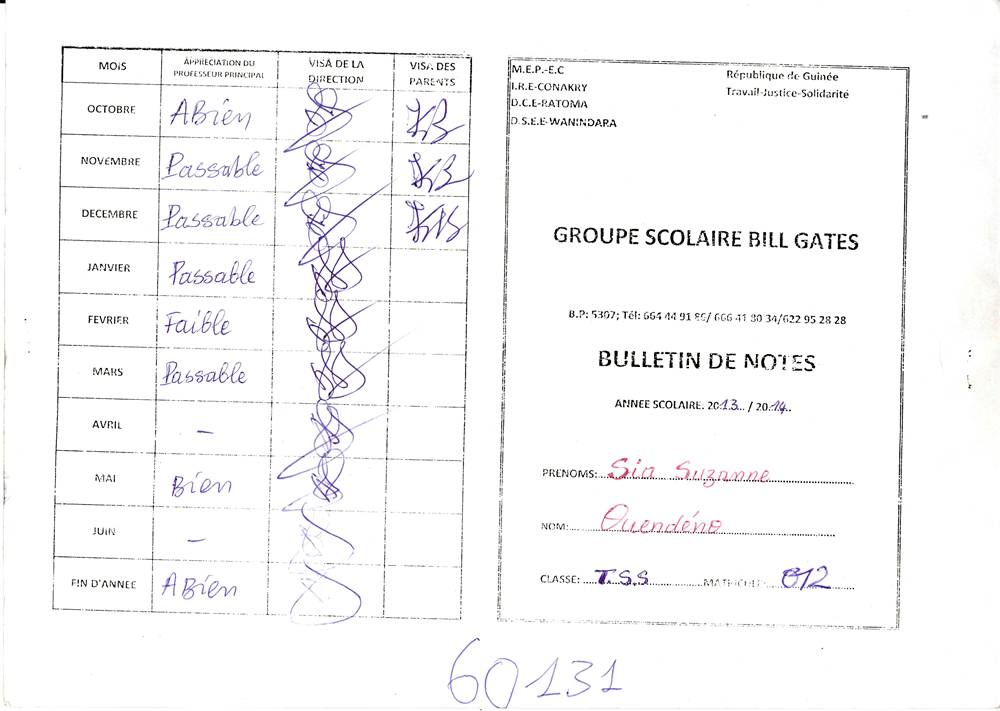 MOIS APPRÉCIATION DU PROFESSEUR PRINCIPAL VISA DE LA DIRECTION VISA DES PARENTS
OCTOBRE ABien
NOVEMBRE Passable
DECEMBRE Passable
JANVIER Passable
FEVRIER Faible
MARS Passable
AVRIL –
MAI Bien
JUIN –
FIN D'ANNEE ABien
M.E.P.-E.C
I.R.E-CONAKRY
D.C.E-RATOMA
D.S.E.E-WANINDARA
République de Guinée
Travail-Justice-Solidarité
GROUPE SCOLAIRE BILL GATES
B.P: 5307; Tél: 664 44 91 86/ 666 41 80 34/622 95 28 28
BULLETIN DE NOTES
ANNEE SCOLAIRE. 2013.. / 2014..
PRENOMS: Sia Suzanne
NOM: Ouendéno
CLASSE: T.S.S MATRICULE: 612
60131